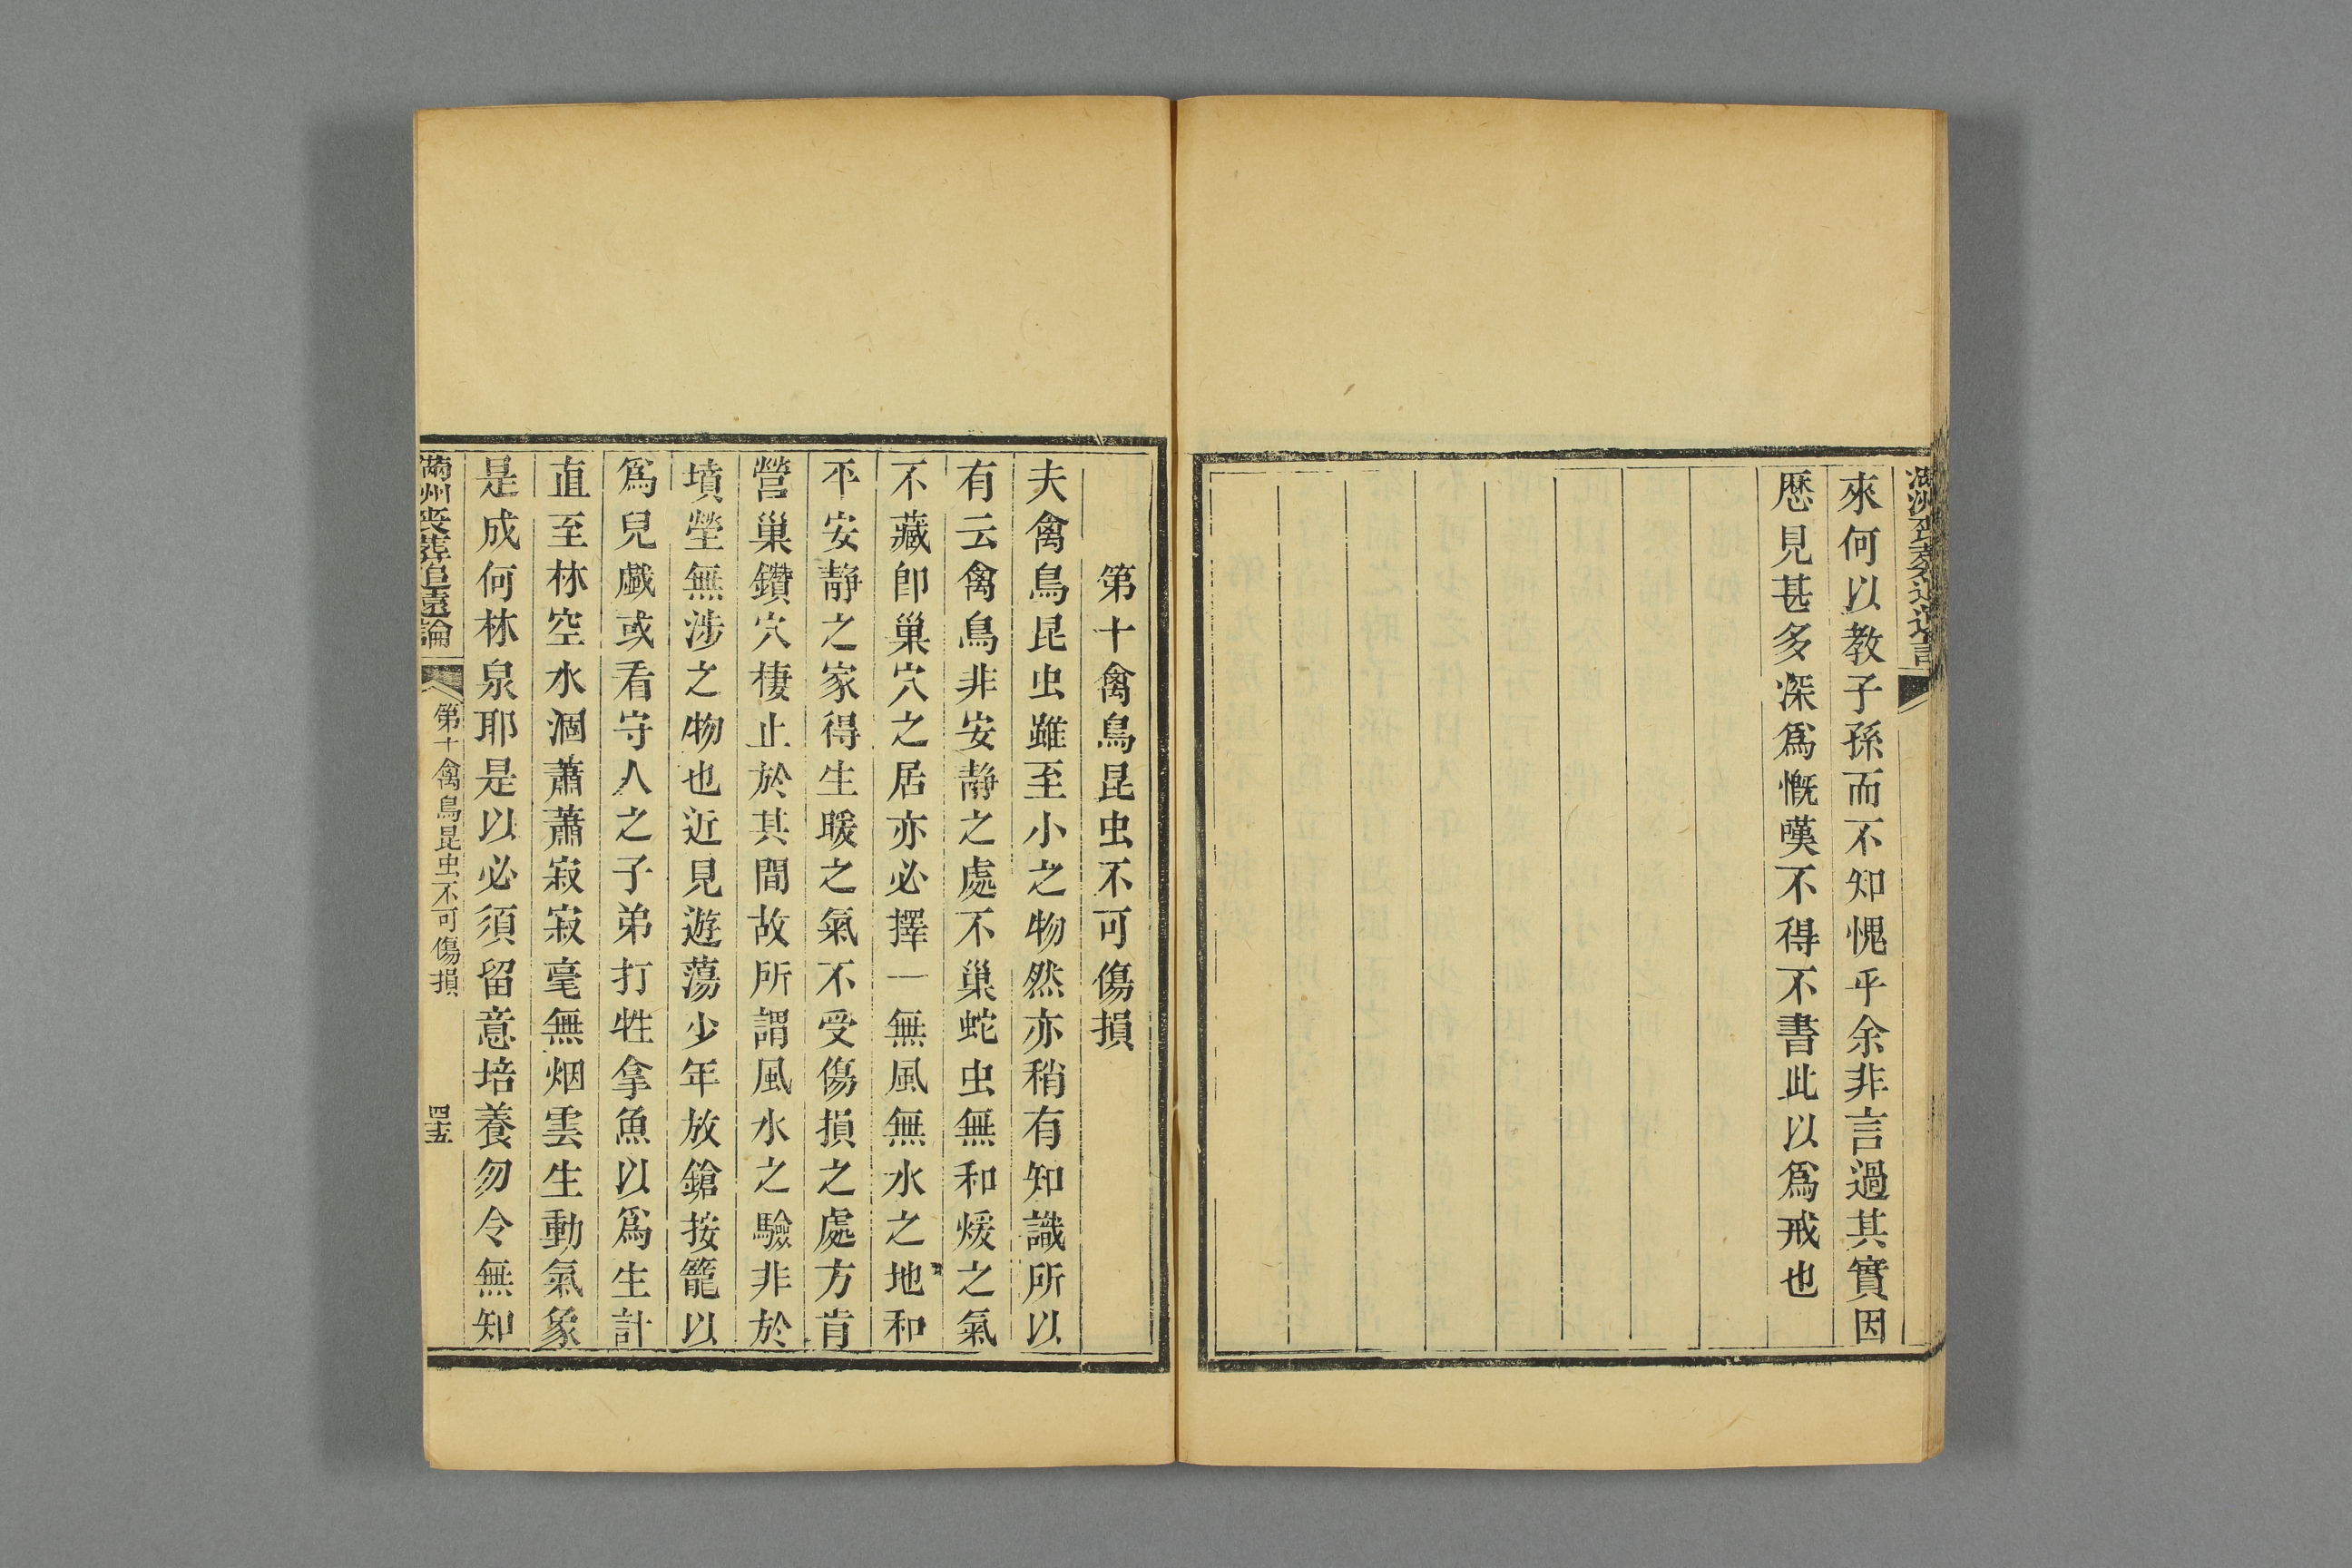 來何以教子孫而不知愧乎余非言過其實因
歷見甚多深爲慨嘆不得不書此以爲戒也
第十禽鳥昆虫不可傷損
夫禽鳥昆虫雖至小之物然亦稍有知識所以
有云禽鳥非安靜之處不巢蛇虫無和煖之氣
不藏卽巢穴之居亦必擇一無風無水之地和
平安靜之家得生暖之氣不受傷損之處方肯
營巢鑽穴棲止於其間故所謂風水之驗非於
墳塋無涉之物也近見遊蕩少年放鎗按籠以
爲兒戲或看守人之子弟打牲拿魚以爲生計
直至林空水涸蕭蕭寂寂毫無烟雲生動氣象
是成何林泉耶是以必須留意培養勿令無知
滿州喪葬追遠論
第十禽鳥昆虫不可傷損
四十五